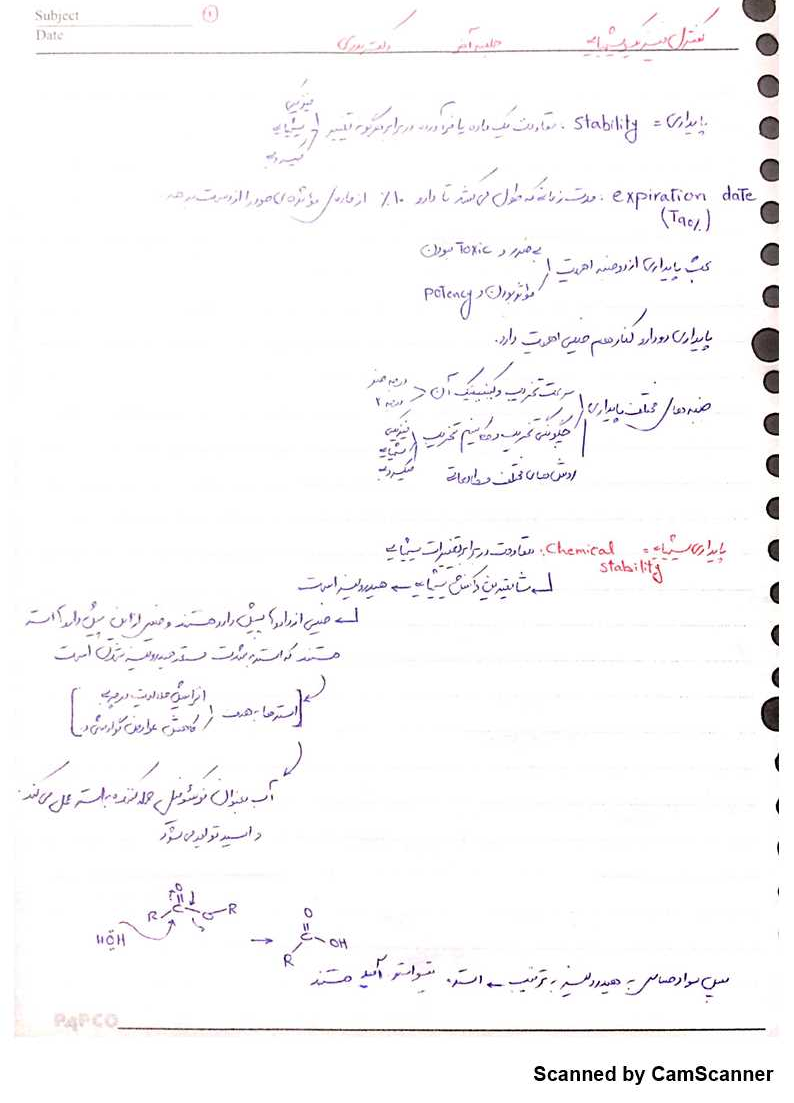 Subject
Date
①
کنترل فیزیکوشیمیایی جلسه آخر دکتر
پایداری = stability: مقاومت یک ماده یا فرآورده در برابر هرگونه تغییر
فیزیکی
شیمیایی
میکروبی
expiration date: مدت زمانی که طول می‌کشد تا دارو ۱۰٪ از ماده‌ی مؤثره‌ی خود را از دست بدهد
(T90%)
بحث پایداری از دو جنبه اهمیت
بی‌ضرر و Toxic نبودن
مؤثر بودن و Potency
پایداری دو دارو کنار هم خیلی اهمیت دارد.
جنبه‌های مختلف پایداری
سرعت تخریب و کینتیک آن < درجه صفر
درجه ۲
چگونگی تخریب و مکانیسم تخریب
فیزیکی
شیمیایی
میکروبی
روش‌های مختلف مطالعاتی
پایداری شیمیایی = Chemical stability: مقاومت در برابر تغییرات شیمیایی
شایعترین واکنش شیمیایی ← هیدرولیز است
خیلی از داروها پیش دارو هستند و خیلی از این پیش داروها استر
هستند که استر به شدت مستعد هیدرولیز شدن است
استرها به هدف
افزایش حلالیت در چربی
کاهش عوارض گوارشی و
آب بعنوان نوکلئوفیل حمله کننده به استر عمل می‌کند.
و اسید تولید می‌شود
R C O O-R
HÖH
→
O
C-OH
R
پس مواد حساس به هیدرولیز به ترتیب ← استر، تیواستر، آمید هستند
PAPCO
Scanned by CamScanner